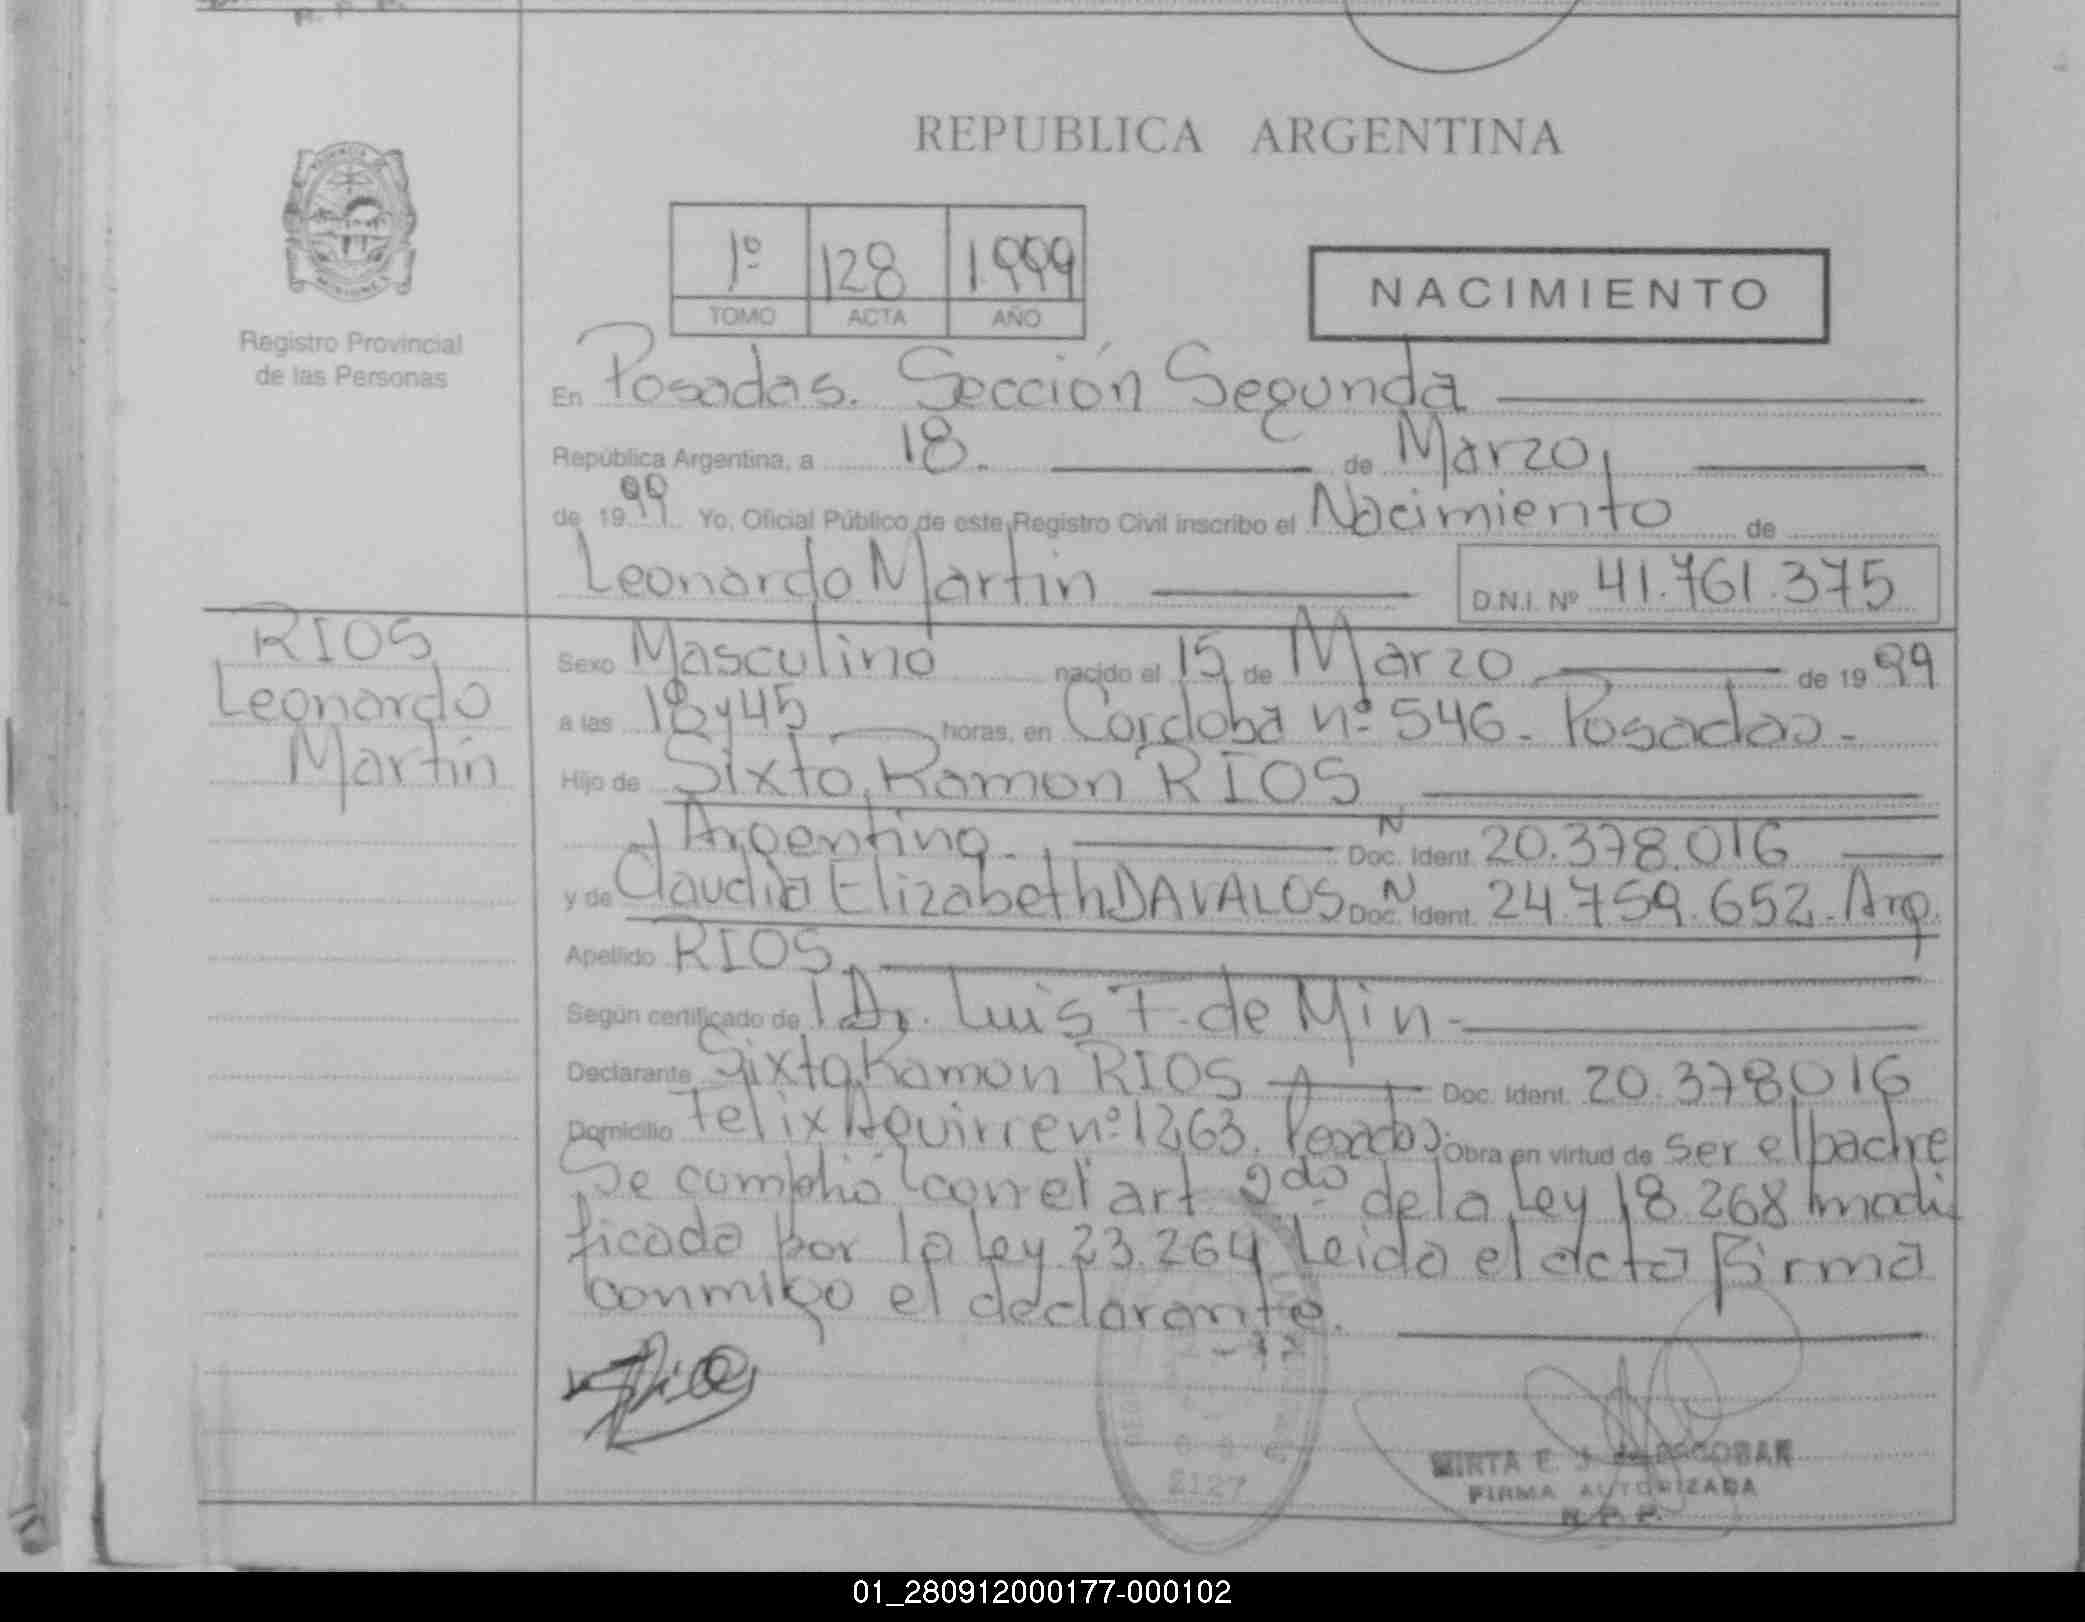 REPUBLICA ARGENTINA
1º 128 1.999
TOMO ACTA AÑO
NACIMIENTO
Registro Provincial
de las Personas
En Posadas. Sección Segunda
República Argentina, a 18. de Marzo
de 1999 Yo, Oficial Público de este Registro Civil inscribo el Nacimiento de
Leonardo Martín
D.N.I. Nº 41.761.375
RIOS
Leonardo
Martín
Sexo Masculino nacido el 15 de Marzo de 1999
a las 18y45 horas, en Cordoba nº 546 - Posadas -
Hijo de Sixto Ramon RIOS
Argentino. N Doc. Ident. 20.378.016
y de Claudia Elizabeth DAVALOS N Doc. Ident. 24.759.652. Arg.
Apellido RIOS
Según certificado de Dr. Luis F. de Min -
Declarante Sixto Ramon RIOS Doc. Ident. 20.378.016
Domicilio Felix Aguirre nº 1263. Posadas Obra en virtud de ser el padre
Se cumplió con el art 2do de la Ley 18.268 modi
ficada por la ley 23.264 Leida el acta Firma
conmigo el declarante.
2127
MIRTA E. J. de ESCOBAR
FIRMA AUTORIZADA
R. P. P.
01_280912000177-000102